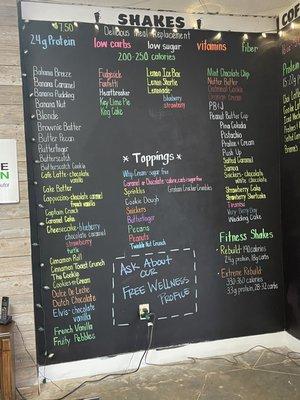 SHAKES
7.50
Delicious Meal Replacement
24g Protein
low carbs
low sugar
vitamins
Fiber
200-250 calories
Bahama Breeze
Banana Caramel
Banana Pudding
Banana Nut
Blondie
Brownie Batter
Butter Pecan
Butterfinger
Butterscotch
Butterscotch Cookie
Café Latte - chocolate
vanilla
Cake Batter
Cappuccino - chocolate caramel
french vanilla
Captain Crunch
Caramel Corn
Cheesecake - blueberry
chocolate caramel
strawberry
turtle
Cinnamon Roll
Cinnamon Toast Crunch
Thin Cookie
Cookies n Cream
Dulce De Leche
Dutch Chocolate
Elvis - chocolate
vanilla
French Vanilla
Fruity Pebbles
Fudgesicle
Funfetti
Heartbreaker
Key Lime Pie
King Cake
Lemon Ice Box
Lemon Starlite
Lemonade -
blueberry
strawberry
* Toppings *
Whip Cream - sugar free
Caramel or Chocolate - calorie, carb, sugar free
Sprinkles
Graham Cracker Crumbles
Cookie Dough
Snickers
Butterfinger
Pecans
Peanuts
ASK ABOUT
OUR
FREE WELLNESS
PROFILE
Mint Chocolate Chip
Nutter Butter
Oatmeal Cookie
PB+J
Peanut Butter Cup
Pina Colada
Pistachio
Praline + Cream
Push Up
Salted Caramel
Samoa
Snickers -
Strawberry Cake
Strawberry Shortcake
Tiramisu
Very Berry
Wedding Cake
Fitness Shakes
- Rebuild - 190 calories
24g protein,
- Extreme Rebuild
330-350 calories